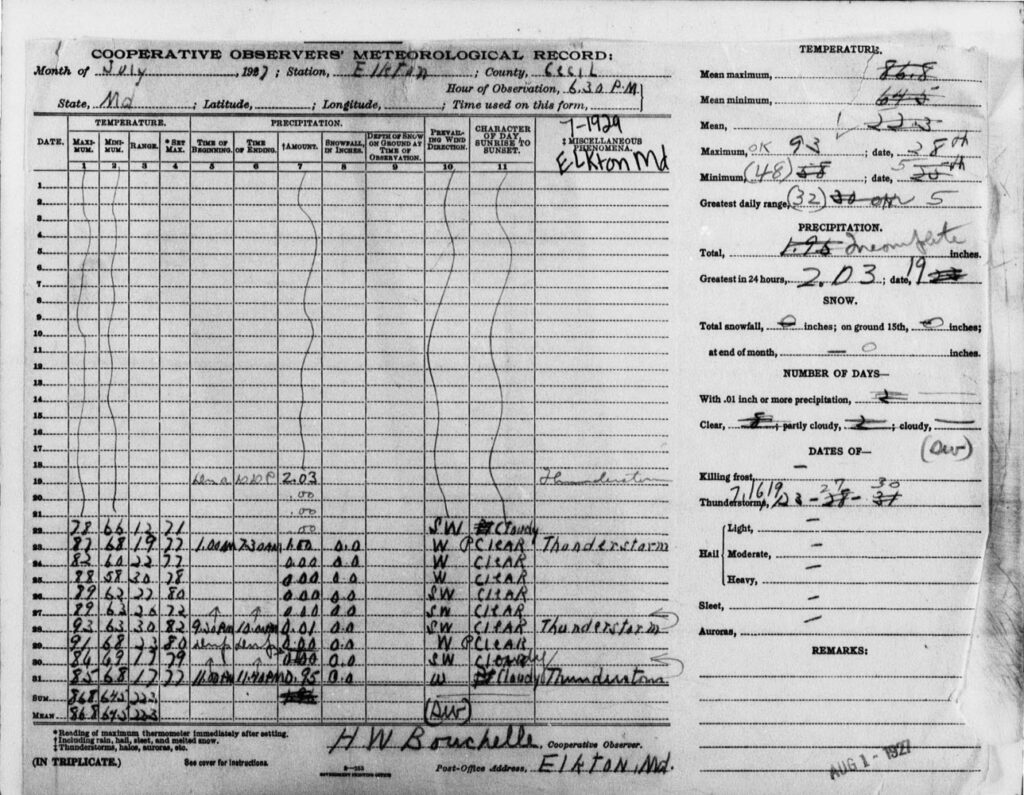 COOPERATIVE OBSERVERS' METEOROLOGICAL RECORD:
Month of July, 1927; Station, Elkton; County, Cecil
Hour of Observation, 6.30 P.M.
State, Md; Latitude, ; Longitude, ; Time used on this form,
TEMPERATURE. PRECIPITATION. 7-1929
DATE. MAXIMUM. MINIMUM. RANGE. *SET MAX. TIME OF BEGINNING. TIME OF ENDING. †AMOUNT. SNOWFALL, IN INCHES. DEPTH OF SNOW ON GROUND AT TIME OF OBSERVATION. PREVAILING WIND DIRECTION. CHARACTER OF DAY, SUNRISE TO SUNSET. ‡MISCELLANEOUS PHENOMENA.
Elkton Md
1 2 3 4 5 6 7 8 9 10 11
1
2
3
4
5
6
7
8
9
10
11
12
13
14
15
16
17
18
19 2.03 Thunderstorm
20 .00
21 .00
22 78 66 12 71 .00 SW Cloudy
23 87 68 19 77 1.00AM 7.30AM 1.00 0.0 W PCLEAR Thunderstorm
24 82 60 22 77 0.00 0.0 W CLEAR
25 88 58 30 78 0.00 0.0 W CLEAR
26 89 62 27 80 0.00 0.0 SW CLEAR
27 89 63 26 72 0.00 0.0 SW CLEAR
28 93 63 30 82 9.30PM 10.00PM 0.01 0.0 SW CLEAR Thunderstorm
29 91 68 23 80 0.00 0.0 W PCLEAR
30 86 69 17 79 0.00 0.0 SW Cloudy
31 85 68 17 77 11.00PM 11.40PM 0.95 0.0 W Cloudy Thunderstom
SUM 868 645 223
MEAN 86.8 64.5 22.3
(DW)
*Reading of maximum thermometer immediately after setting.
†Including rain, hail, sleet, and melted snow.
‡Thunderstorms, halos, auroras, etc.
(IN TRIPLICATE.) See cover for instructions.
H W Bouchelle, Cooperative Observer.
GOVERNMENT PRINTING OFFICE
Post-Office Address, Elkton, Md.
TEMPERATURE.
Mean maximum, 86.8
Mean minimum, 64.5
Mean, 22.3
Maximum, OK 93; date, 28th
Minimum, (48) 58; date, 5 25th
Greatest daily range, (32) 30 on 5
PRECIPITATION.
Total, 1.95 Incomplete inches.
Greatest in 24 hours, 2.03; date, 19
SNOW.
Total snowfall, 0 inches; on ground 15th, 0 inches;
at end of month, — 0 inches.
NUMBER OF DAYS—
With .01 inch or more precipitation, 2
Clear, 8; partly cloudy, 2; cloudy, —
(DW)
DATES OF—
Killing frost, —
Thunderstorms, 7, 16 19, 23 - 27 28 - 30 31
Hail
Light, —
Moderate, —
Heavy, —
Sleet, —
Auroras, —
REMARKS:
AUG 1 - 1927